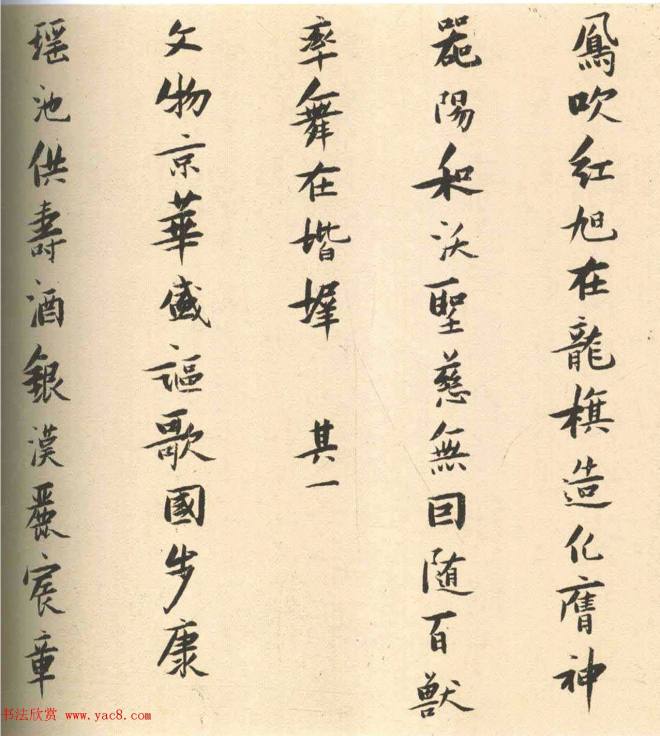 鳳吹紅旭在龍旗造化膺神
器陽和沃聖慈無因随百獸
率舞在堦墀 其一
文物京華盛謳歌國步康
瑶池供壽酒銀漢麗宸章
书法欣赏 www.yac8.com